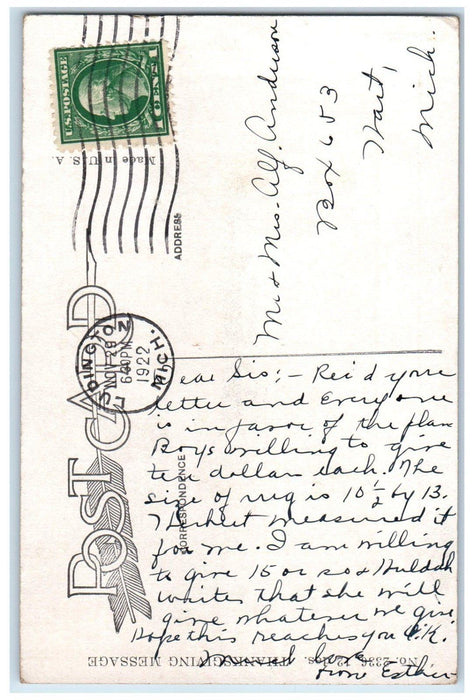 U.S. POSTAGE
1 CENT 1
Made in U.S.A.
POST CARD
CORRESPONDENCE
ADDRESS
LUDINGTON
NOV 29
6 30 PM
1922
MICH.
Mr & Mrs. Alf. Anderson
Box 653
Hart,
Mich.
Dear Sis:- Rec'd your
letter and everyone
is in favor of the plan
Boys willing to give
ten dollars each. The
size of rug is 10 1/2 by 13.
measured it
for me. I am willing
to give 15 or so & Huldah
writes that she will
give whatever we give
Hope this reaches you O.K.
love
from Esther
No. 2336 12 Des. THANKSGIVING MESSAGE